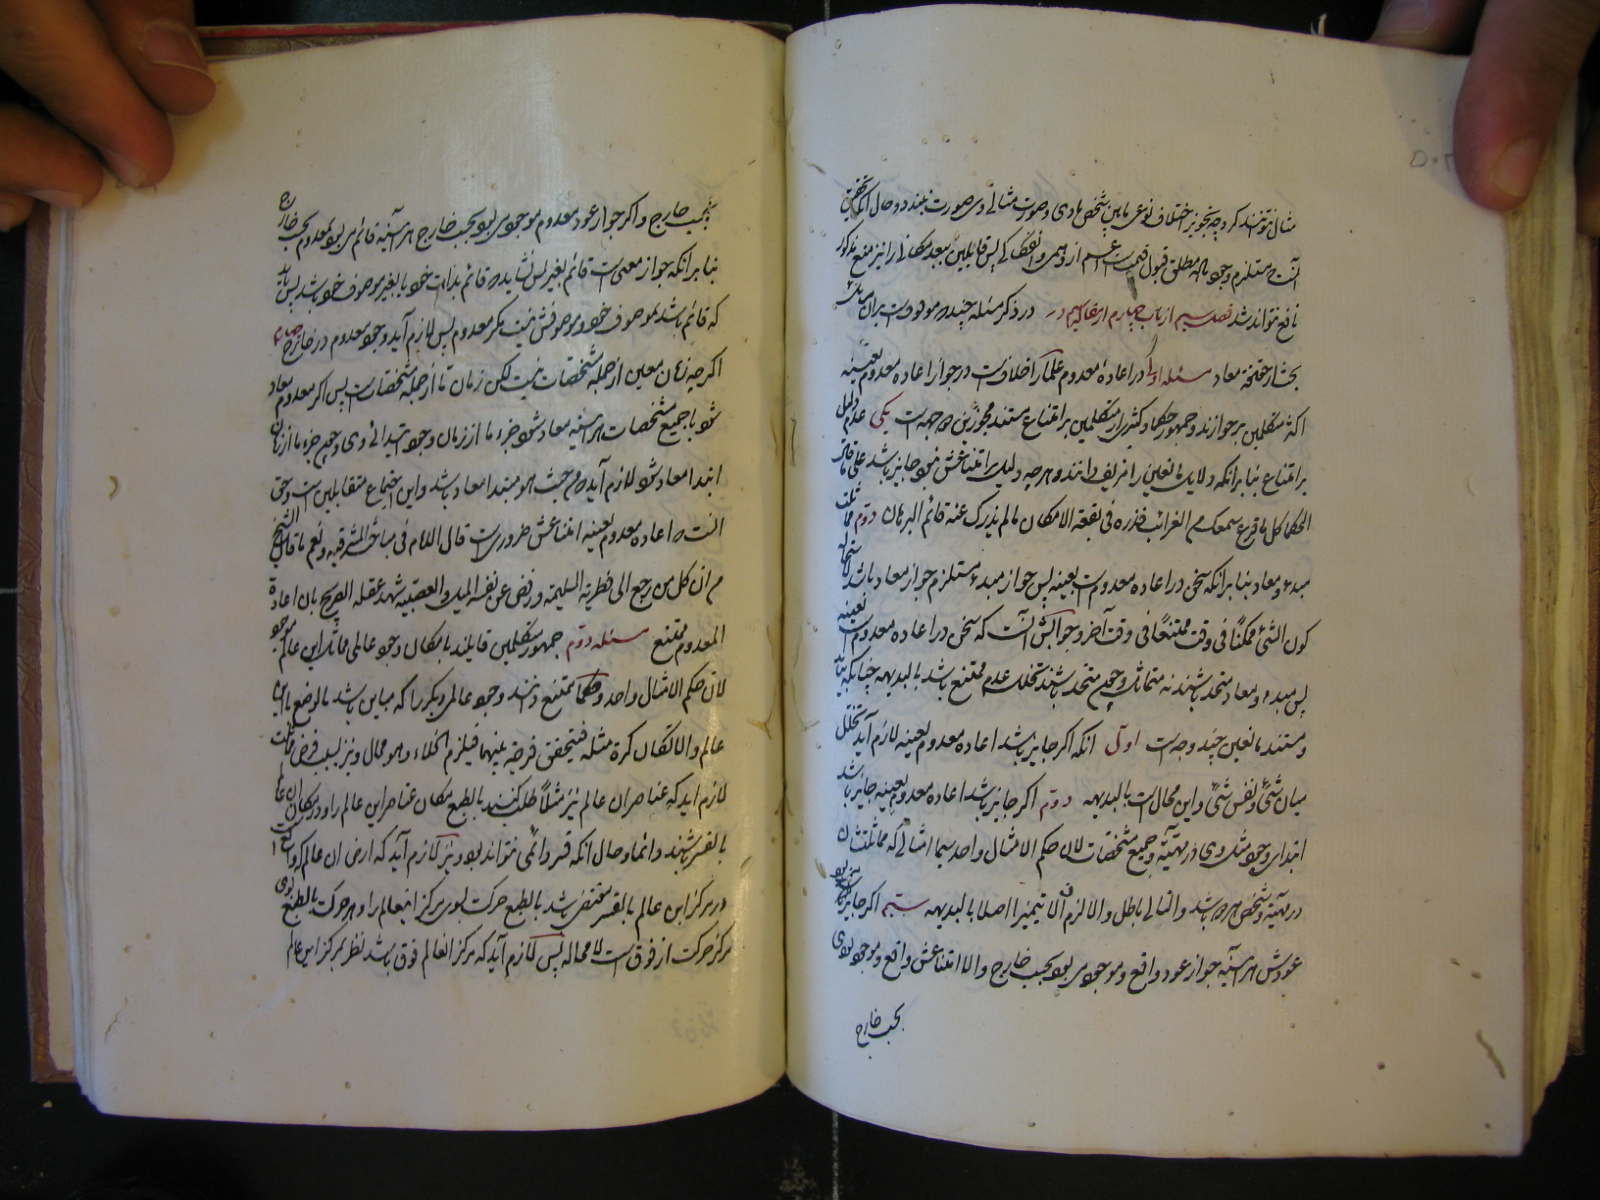 مثال نتوانند کرد چه تجویز اختلاف نوعی ما بین شخص مادی و صورت مثالی وی صورت نبندد و حال آنکه تحقیق
آنست که مستلزم وجود ماده مطلق قبول قسمت است اعم از وهمی و انفکاکی پس قابلین ببعد مکانی را نیز منع مذکور
نافع نتواند شد فصل سیم از باب چهارم از مقاله سیم در ذکر مسئله چند که موقوفست بر آن مسائل
بحث از حقیقت معاد مسئله اولی در اعاده معدوم علما را خلافست در جواز اعاده معدوم بعینه
اکثر متکلمین بر جوازند و جمهور حکما و کثیری از متکلمین بر امتناع مستند مجوزین دو وجهست یکی عدم دلیل
بر امتناع بنا بر آنکه دلایل مانعین را مزیف دانند و هر چه دلیل بر امتناعش نبود جایز باشد علی ما قالت
الحکما کل ما قرع سمعک من الغرائب فذره فی بقعة الامکان ما لم یذدک عنه قائم البرهان دوم مماثلت
مبدء و معاد بنا بر آنکه سخن در اعاده معدومست بعینه پس جواز مبدء مستلزم جواز معاد باشد لاستحاله
کون الشئ ممکنًا فی وقت ممتنعًا فی وقت آخر و جوابش آنست که سخن در اعاده معدومست بعینه
پس مبدء و معاد متحد باشند نه متماثل و چون متحد باشند تخلل عدم ممتنع باشد بالبدیهه چنانکه بیاید
و مستند مانعین چند وجه است اول آنکه اگر جایز باشد اعاده معدوم بعینه لازم آید تخلل
میان شئ و نفس شئ و این محالست بالبدیهه دوم اگر جایز باشد اعاده معدوم بعینه جایز باشد
ابتداء وجود مثل وی در مهیة و جمیع مشخصات لان حکم الامثال واحد سیما امثالی که مماثلتشان
در مهیة و تشخص هر دو باشد و التالی باطل والا لازم الاتمیز اصلا بالبدیهه سیم اگر جایز بودی
عودش هر آینه جواز عود واقع و موجود می بود بحسب خارج والا امتناعش واقع و موجود بودی
بحسب خارج
بحسب خارج و اگر جواز عود معدوم موجود می بود بحسب خارج هر آینه قائم می بود بمعدوم بحسب خارج
بنا بر آنکه جواز معنی است قائم بغیر پس نشاید که قائم بذات خود یا بغیر موصوف خود باشد پس باید
که قائم باشد بموصوف خود و موصوفش نیست مگر معدوم پس لازم آید وجود معدوم در خارج چهارم
اگر چه زمان معین از جمله مشخصات نیست لکن زمان ما از جمله مشخصات است پس اگر معدوم معاد
شود با جمیع مشخصات هر آینه معاد شود جزء ما از زمان وجود ابتدائی وی و چون جزء ما از زمان
ابتدا معاد شود لازم آید که من حیث هو مبتدا معاد باشد و این اجتماع متقابلین است و حق
آنست که اعاده معدوم بعینه امتناعش ضروریست قال الامام فی مباحث المشرقیه و نعم ما قال الشیخ
من ان کل من رجع الی فطرته السلیمة و رفض عن نفسه المیل و العصبیه شهد عقله الصریح بان اعادة
المعدوم ممتنع مسئله دوم جمهور متکلمین قایلند بامکان وجود عالمی مماثل این عالم موجود
لان حکم الامثال واحد و حکما ممتنع دانند وجود عالمی دیگر را که مباین باشد بالوضع با این
عالم والا لکان کرة مثله فیتحقق فرجه بینهما فیلزم الخلاء و هو محال و نیز بسبب فرض مماثلت
لازم آید که عناصر آن عالم نیز مثلاً طلب کنند بالطبع مکان عناصر این عالم را و در مکان آن عالم
بالقسر باشند دائما و حال آنکه قسر دائمی نتواند بود و نیز لازم آید که ارض آن عالم که واقعست
در مرکز این عالم بالقسر مقتضی باشد بالطبع حرکت بسوی مرکز آنعالم را و هر حرکت بالطبع بسوی
مرکز حرکت از فوق است لا محاله پس لازم آید که مرکز آنعالم فوق باشد نظر بمرکز این عالم